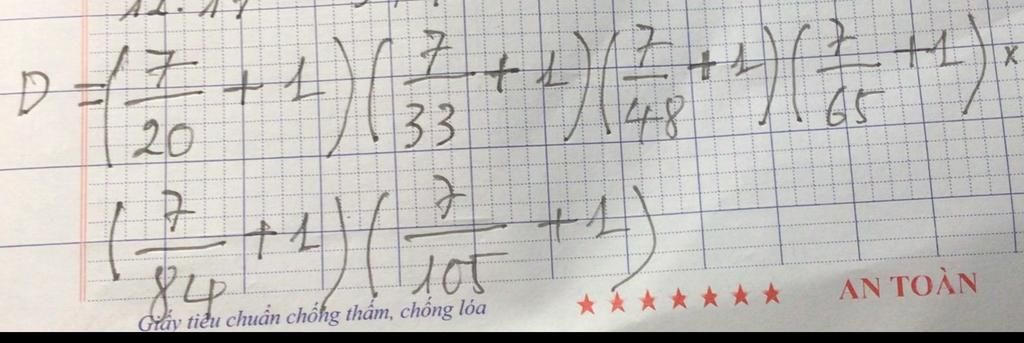 D = (7/20 + 1)(7/33 + 1)(7/48 + 1)(7/65 + 1) ×
(7/84 + 1)(7/105 + 1)
Giấy tiêu chuẩn chống thấm, chống lóa
★ ★ ★ ★ ★ ★ ★ AN TOÀN